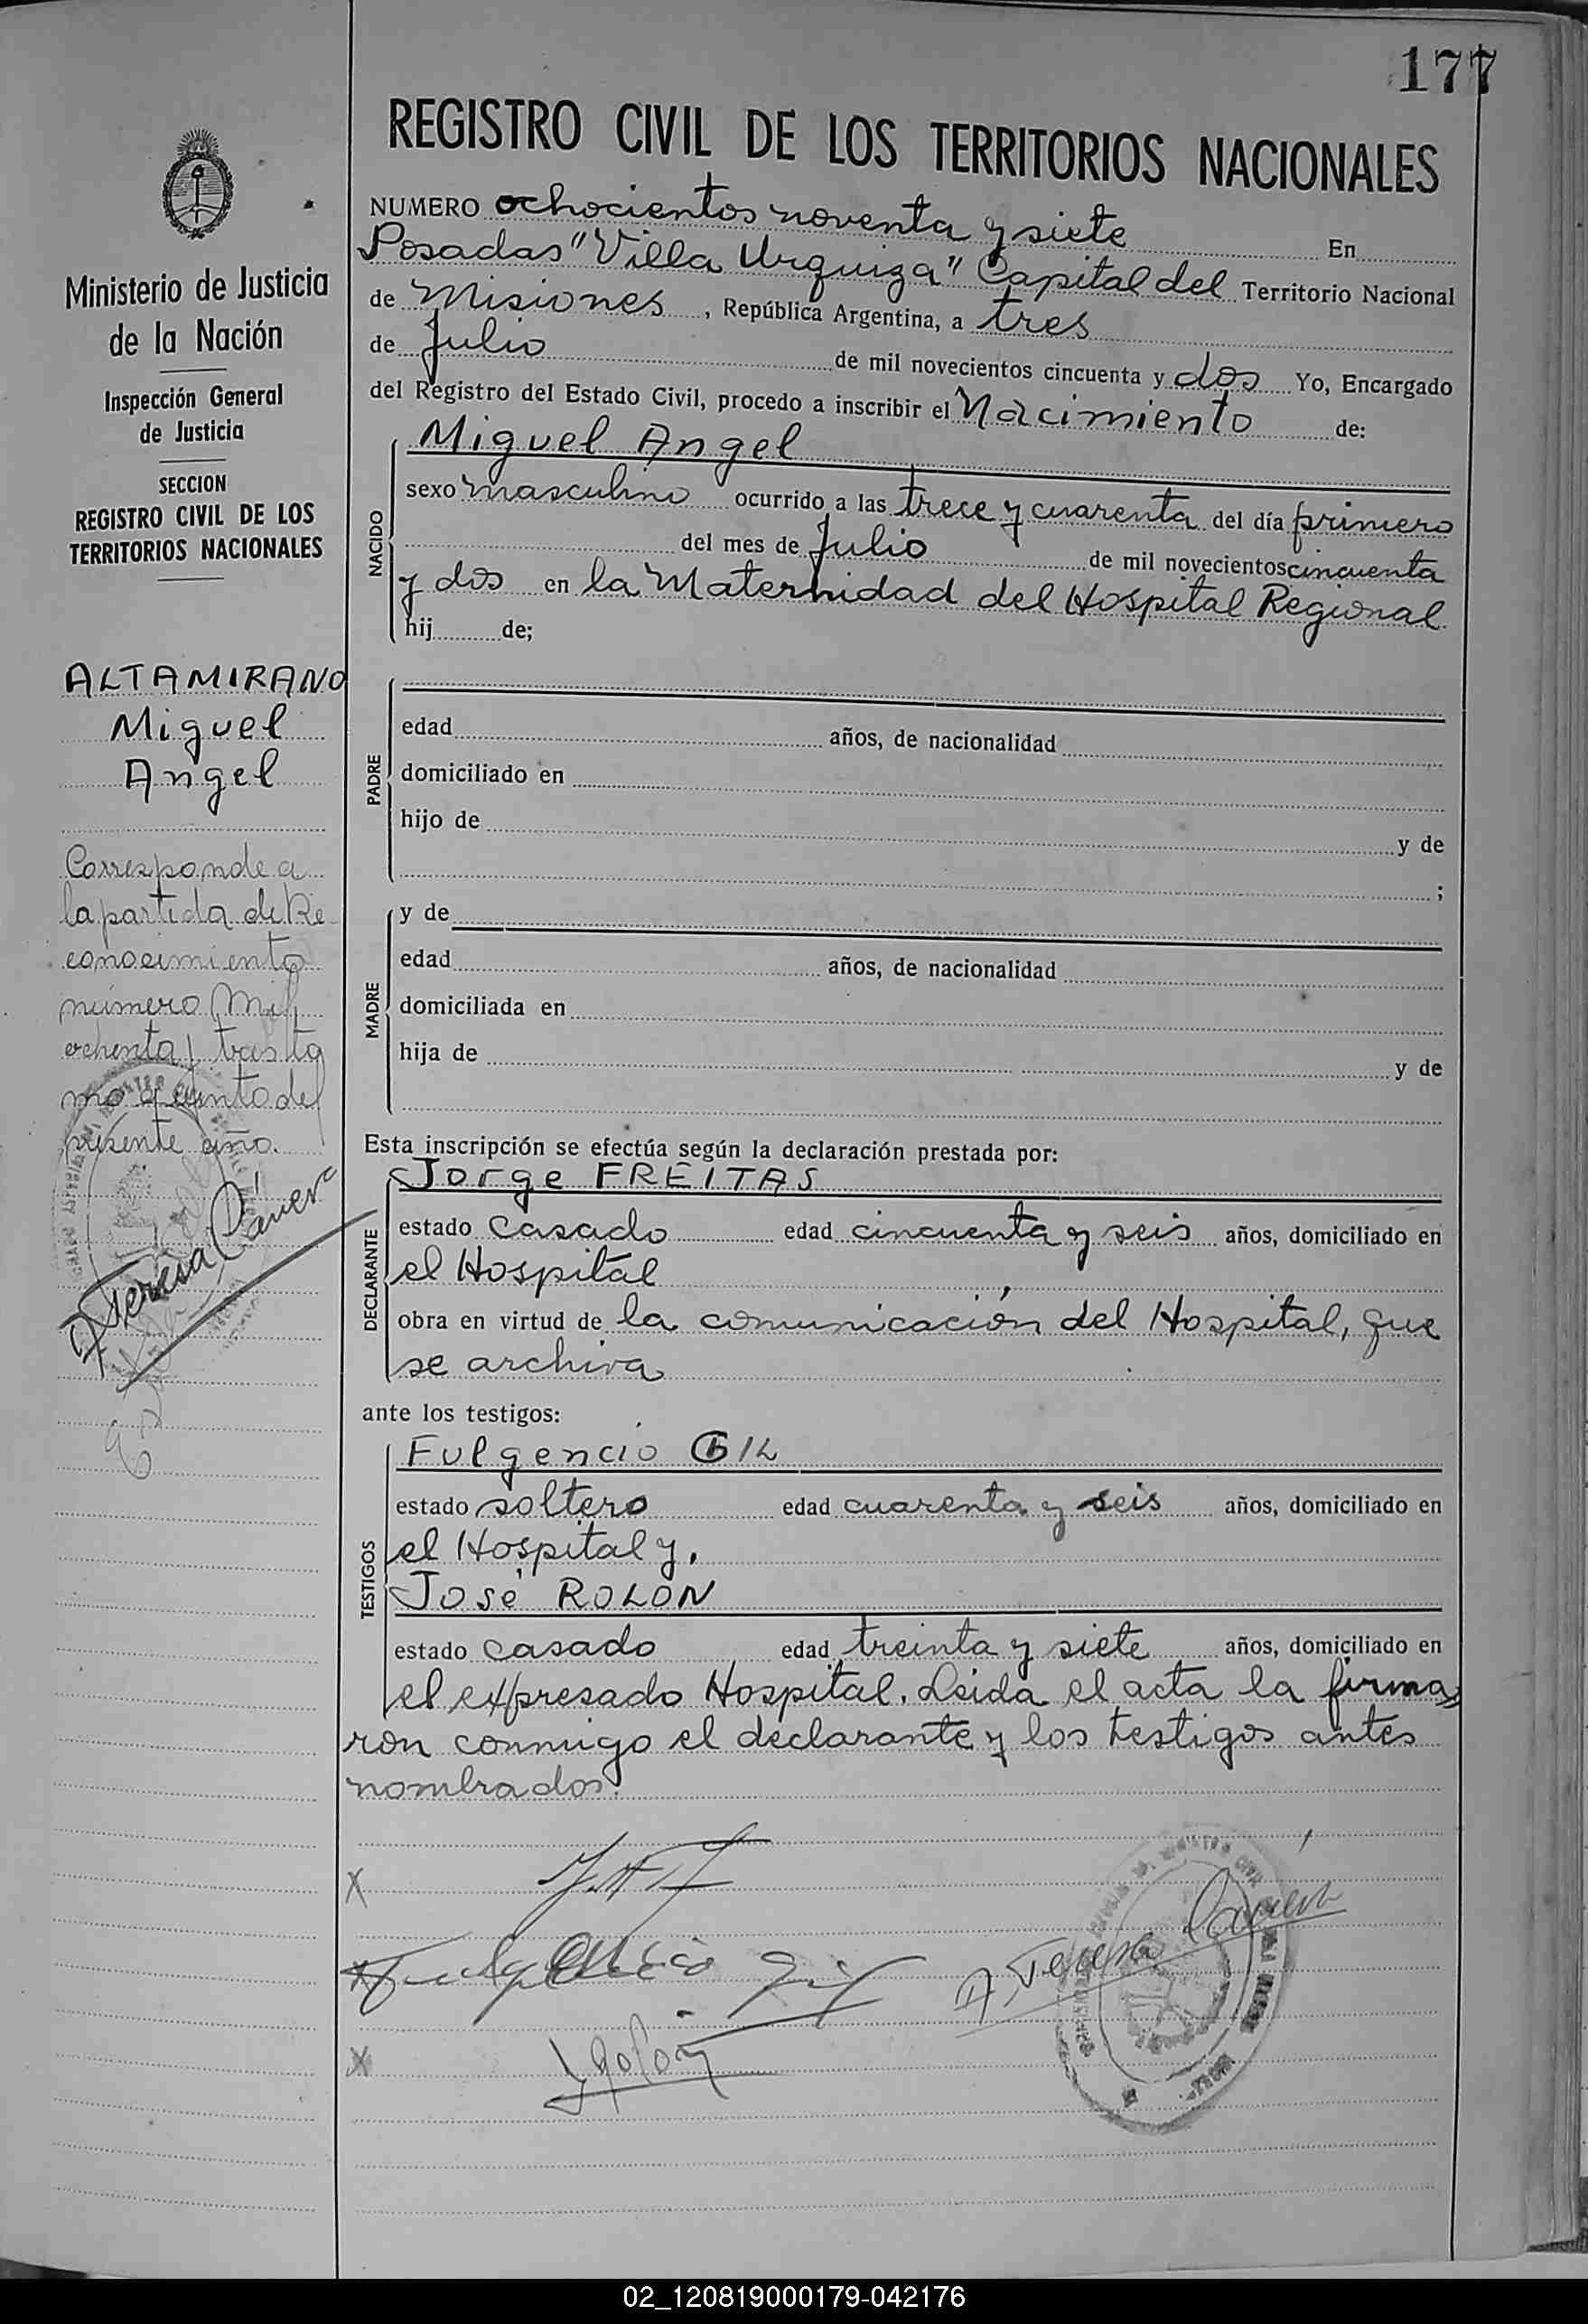 177
REGISTRO CIVIL DE LOS TERRITORIOS NACIONALES
Ministerio de Justicia
de la Nación
Inspección General
de Justicia
SECCION
REGISTRO CIVIL DE LOS
TERRITORIOS NACIONALES
ALTAMIRANO
Miguel
Angel
Corresponde a
la partida de Re
conocimiento
número Mil
ochenta, tres to
mo quinto del
presente año.
NUMERO ochocientos noventa y siete En
Posadas "Villa Urquiza" Capital del Territorio Nacional
de Misiones, República Argentina, a tres
de Julio de mil novecientos cincuenta y dos Yo, Encargado
del Registro del Estado Civil, procedo a inscribir el Nacimiento de:
NACIDO
Miguel Angel
sexo masculino ocurrido a las trece y cuarenta del día primero
del mes de Julio de mil novecientos cincuenta
y dos en la Maternidad del Hospital Regional
hij de;
PADRE
edad años, de nacionalidad
domiciliado en
hijo de y de
;
MADRE
y de
edad años, de nacionalidad
domiciliada en
hija de y de
Esta inscripción se efectúa según la declaración prestada por:
DECLARANTE
Jorge FREITAS
estado casado edad cincuenta y seis años, domiciliado en
el Hospital
obra en virtud de la comunicación del Hospital, que
se archiva
ante los testigos:
TESTIGOS
Fulgencio GIL
estado soltero edad cuarenta y seis años, domiciliado en
el Hospital y,
José ROLON
estado casado edad treinta y siete años, domiciliado en
el expresado Hospital. Leida el acta la firma
ron conmigo el declarante y los testigos antes
nombrados.
x
x Fulgencio Gil
x JRolon
02_120819000179-042176